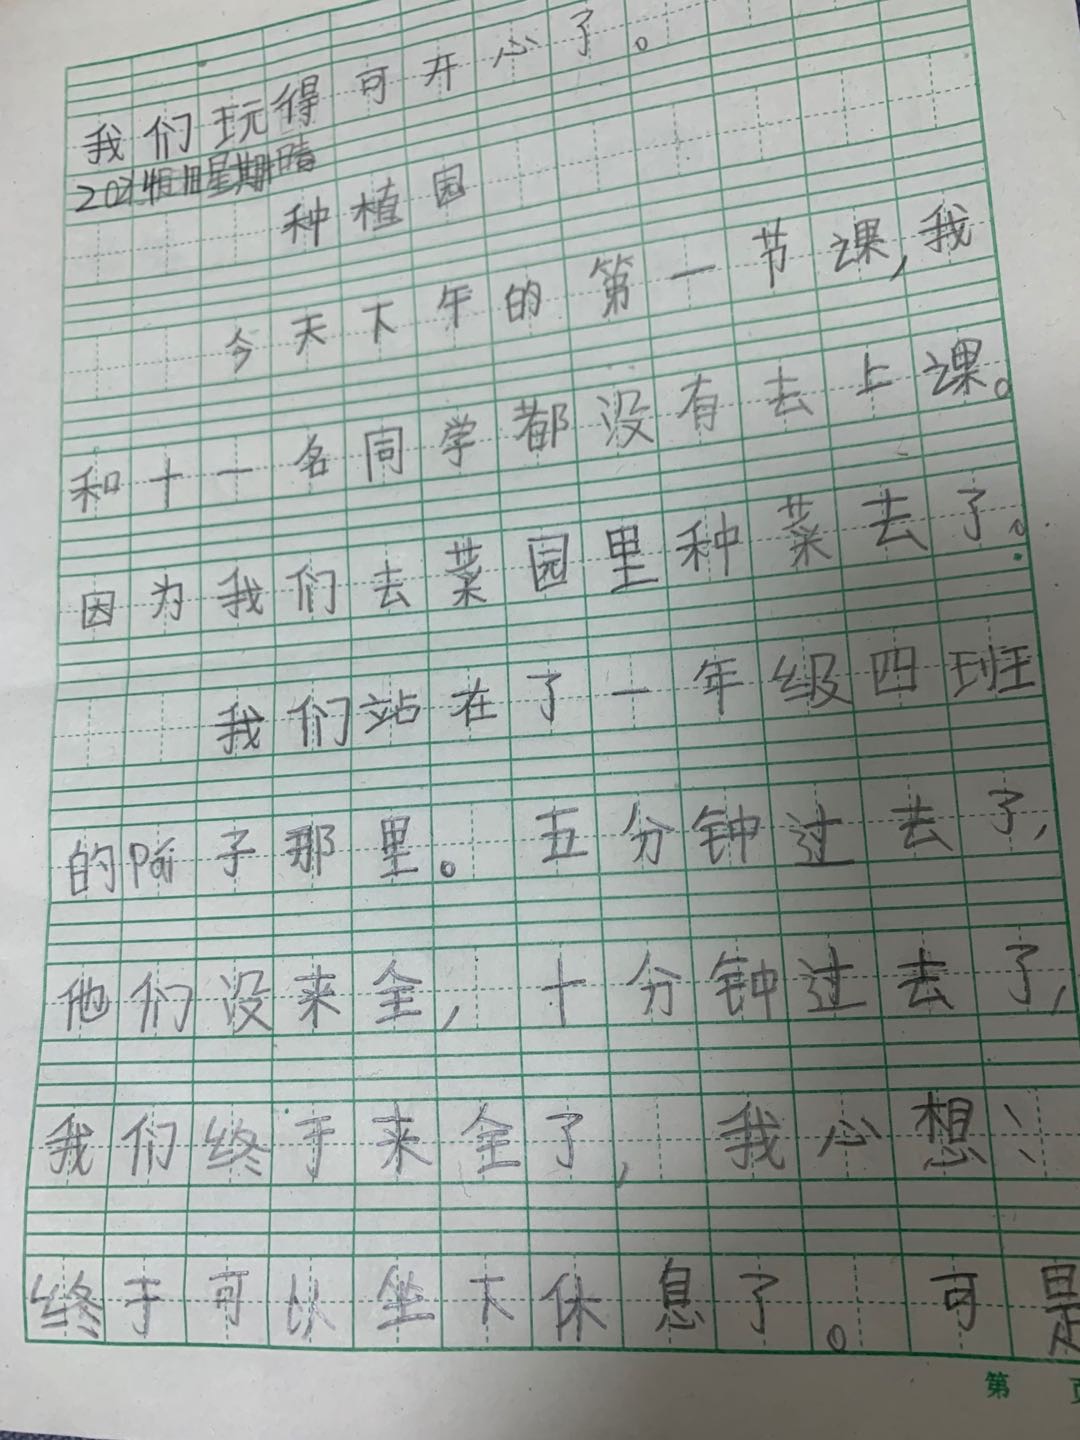 我们玩得可开心了。
星期 晴
种植园
今天下午的第一节课,我
和十一名同学都没有去上课。
因为我们去菜园里种菜去了。
我们站在了一年级四班
的pái子那里。五分钟过去了,
他们没来全,十分钟过去了,
我们终于来全了,我心想:
终于可以坐下休息了。可是
第 页